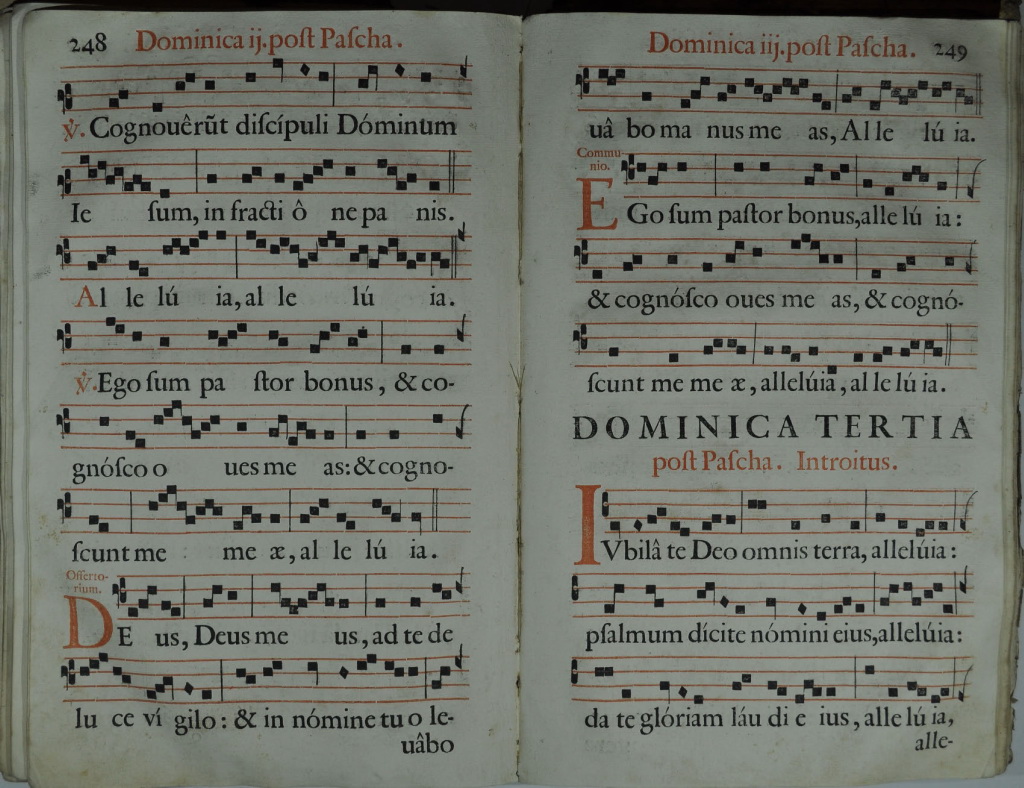 248 Dominica ij. post Pascha.
℣. Cognouêrũt discípuli Dóminum
Ie sum, in fracti ô ne pa nis.
Al le lú ia, al le lú ia.
℣. Ego sum pa stor bonus, & co-
gnósco o ues me as: & cogno-
scunt me me æ, al le lú ia.
Offerto-
rium.
DE us, Deus me us, ad te de
lu ce ví gilo: & in nómine tu o le-
uâbo
Dominica iij. post Pascha. 249
uâ bo ma nus me as, Al le lú ia.
Commu-
nio.
EGo sum pastor bonus, alle lú ia:
& cognósco oues me as, & cognó-
scunt me me æ, allelúia, al le lú ia.
DOMINICA TERTIA
post Pascha. Introitus.
IVbilâ te Deo omnis terra, allelúia:
psalmum dícite nómini eius, allelúia:
da te glóriam láu di e ius, alle lú ia,
alle-